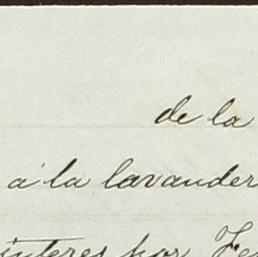 de la
á la lavander
interes por Fe